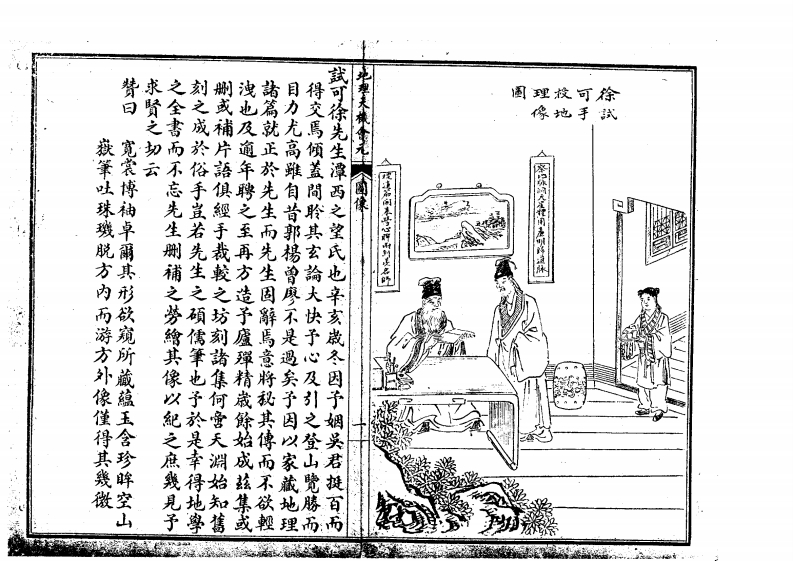 徐試
可手
授地
理像
圖
地理天機會元
圖像
一
試可徐先生潭西之望氏也辛亥歲冬因予姻吳君挺百而
得交焉傾蓋間聆其玄論大快予心及引之登山覽勝而
目力尤高雖自昔郭楊曾廖不是過矣予因以家藏地理
諸篇就正於先生而先生固辭焉意將秘其傳而不欲輕
洩也及逾年聘之至再方造予廬殫精歲餘始成茲集或
刪或補片語俱經手裁較之坊刻諸集何啻天淵始知舊
刻之成於俗手豈若先生之碩儒筆也予於是幸得地學
之全書而不忘先生刪補之勞繪其像以紀之庶幾見予
求賢之切云
贊曰
寬裳博袖卓爾其形欲窺所藏蘊玉含珍眸空山
嶽筆吐珠璣脫方內而游方外像僅得其幾微